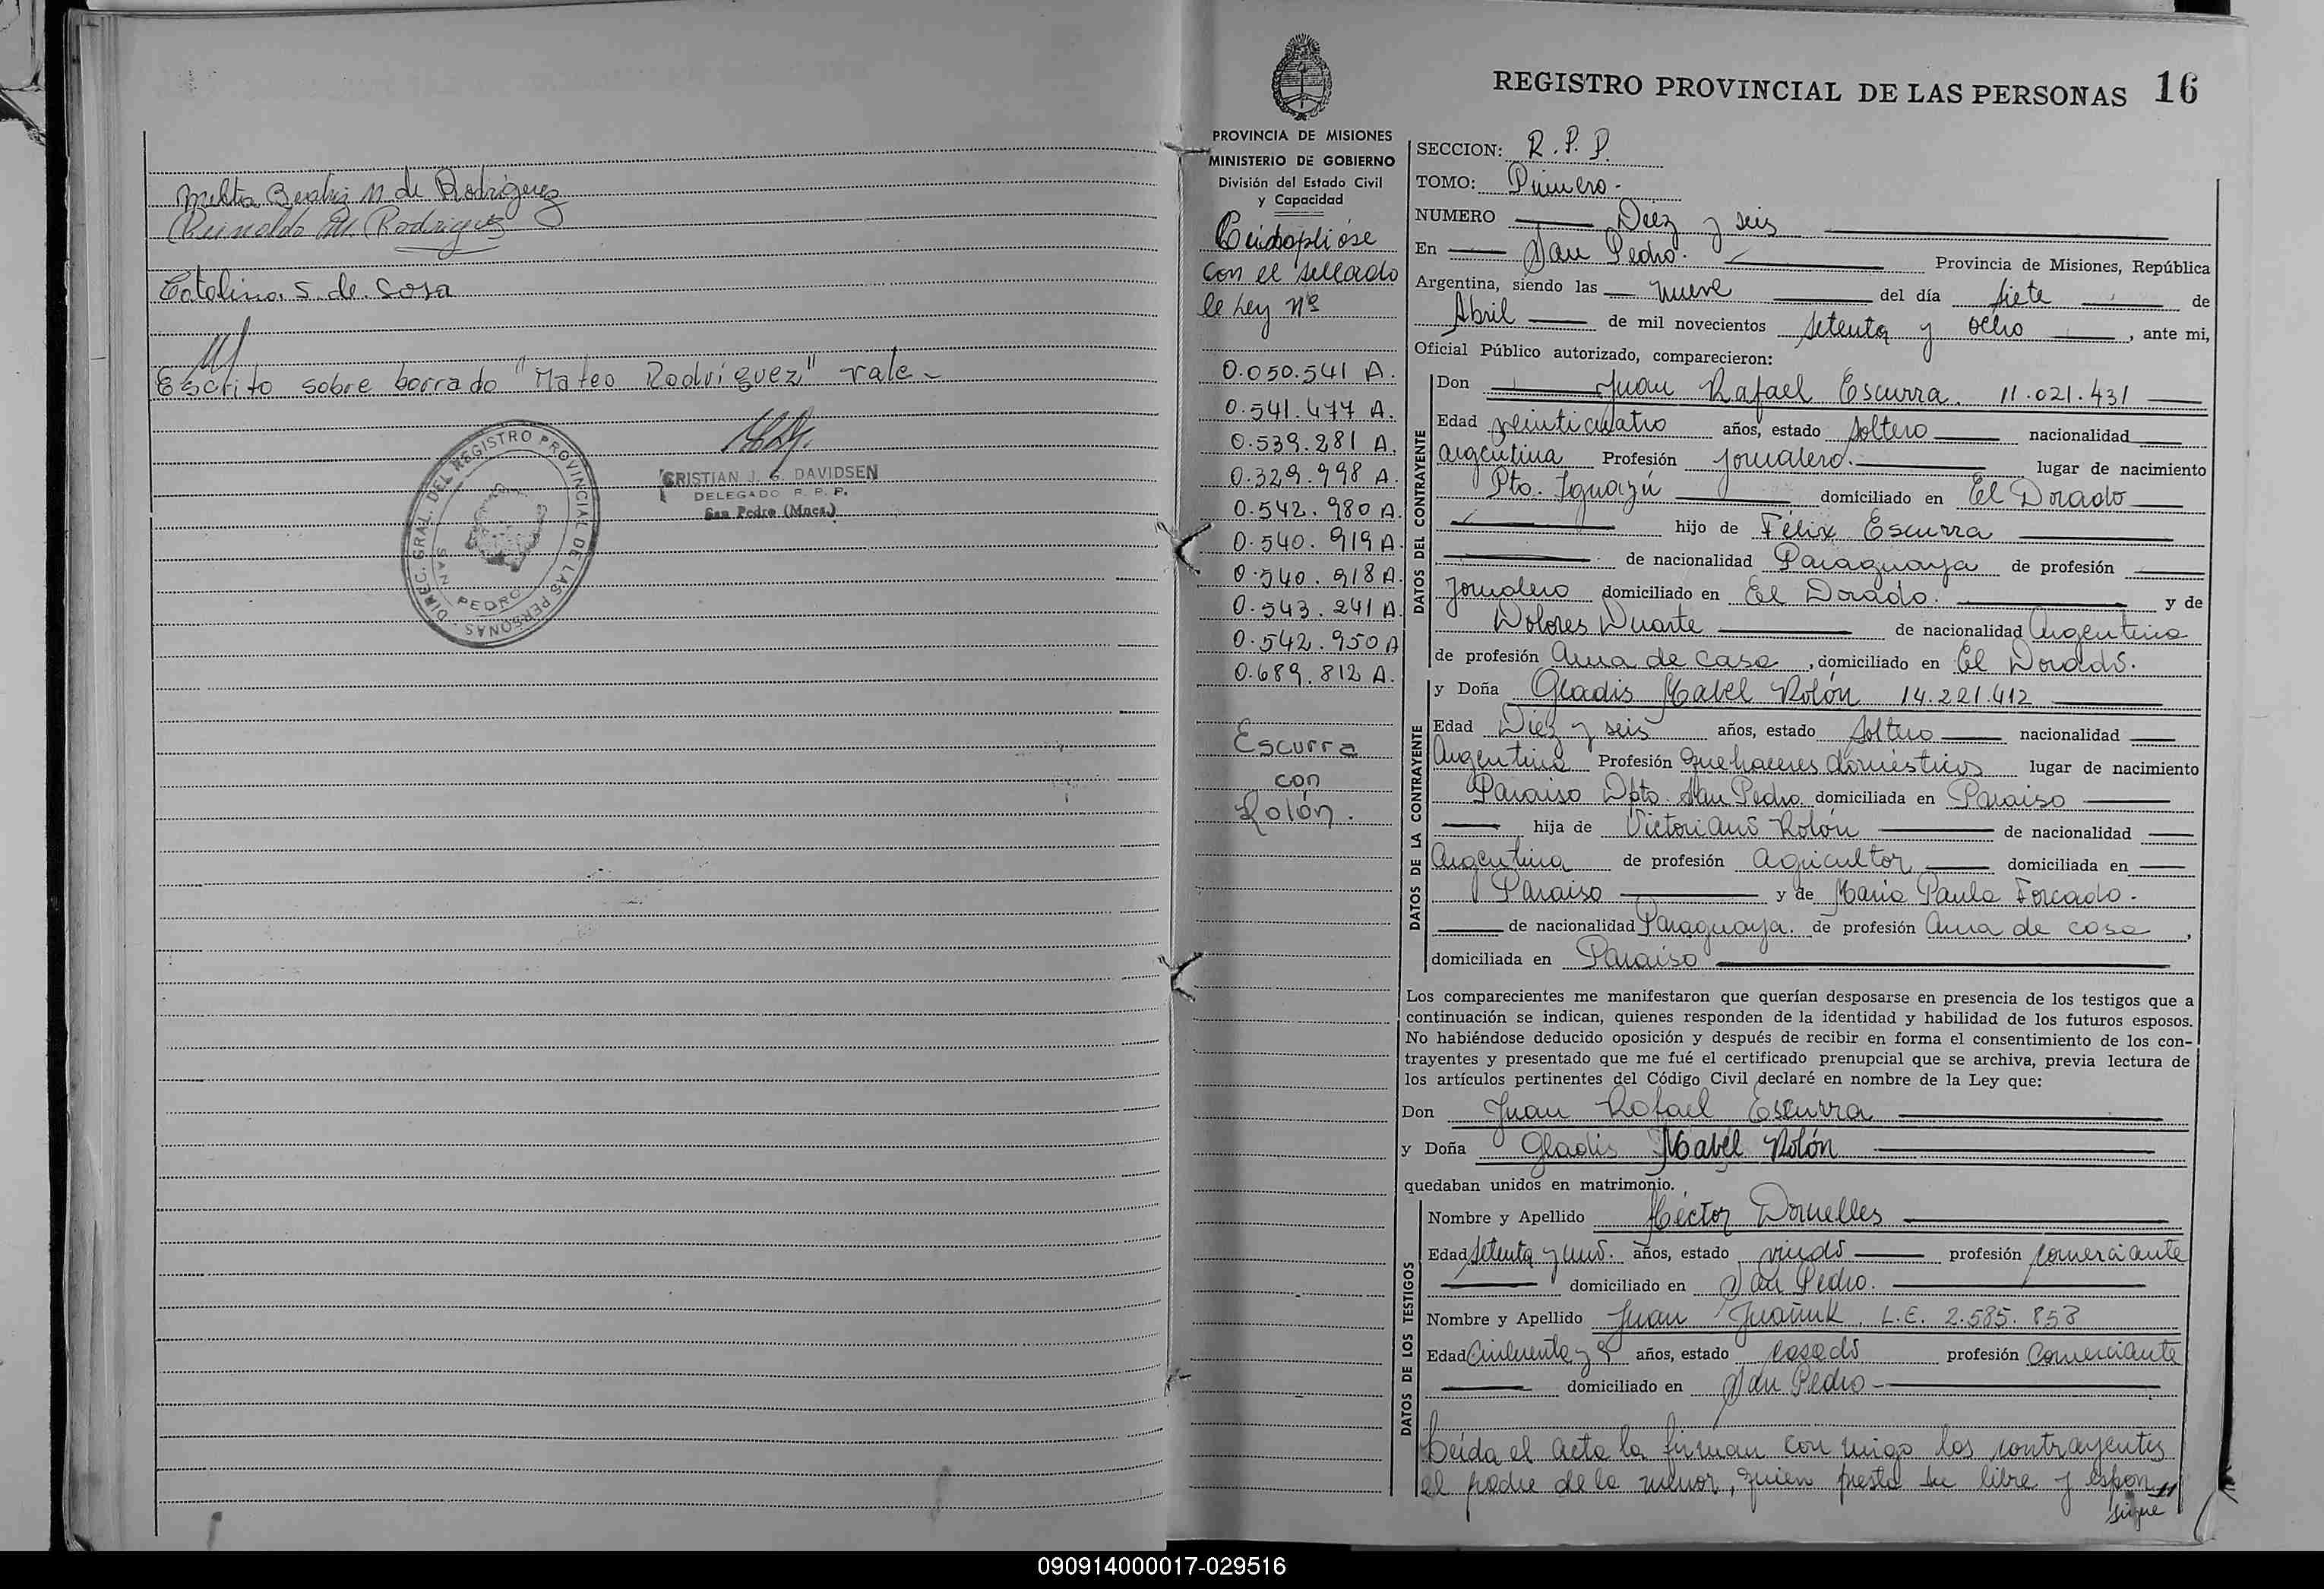 Melba Beatriz N. de Rodriguez
Reinaldo M. Rodriguez
Catalina S. de Sosa
Escrito sobre borrado "Mateo Rodríguez" vale-
DIREC. GRAL. DEL REGISTRO PROVINCIAL DE LAS PERSONAS
SAN PEDRO
CRISTIAN J. G. DAVIDSEN
DELEGADO R. P. P.
San Pedro (Mnes.)
REGISTRO PROVINCIAL DE LAS PERSONAS 16
PROVINCIA DE MISIONES
MINISTERIO DE GOBIERNO
División del Estado Civil
y Capacidad
con el sellado
de Ley Nº
0.050.541 A.
0.541.477 A.
0.539.281 A.
0.329.998 A.
0.542.980 A.
0.540.919 A.
0.540.918 A.
0.543.241 A.
0.542.950 A
0.689.812 A.
Escurra
con
Rolón.
SECCION: R. P. P.
TOMO: Primero.-
NUMERO Diez y seis
En San Pedro. Provincia de Misiones, República
Argentina, siendo las nueve del día siete de
Abril de mil novecientos setenta y ocho, ante mi,
Oficial Público autorizado, comparecieron:
DATOS DEL CONTRAYENTE
Don Juan Rafael Escurra. 11.021.431
Edad veinticuatro años, estado soltero nacionalidad
argentina Profesión jornalero. lugar de nacimiento
Pto. Iguazú domiciliado en El Dorado
hijo de Félix Escurra
de nacionalidad Paraguaya de profesión
Jornalero domiciliado en El Dorado. y de
Dolores Duarte de nacionalidad Argentina
de profesión Ama de casa, domiciliado en El Dorado.
DATOS DE LA CONTRAYENTE
y Doña Gladis Mabel Rolón 14.221.412
Edad Diez y seis años, estado soltera nacionalidad
Argentina Profesión quehaceres domésticos lugar de nacimiento
Paraiso Dpto. San Pedro domiciliada en Paraiso
hija de Victoriano Rolón de nacionalidad
Argentina de profesión agricultor domiciliada en
Paraiso y de Maria Paula Forcado.
de nacionalidad Paraguaya. de profesión Ama de casa,
domiciliada en Paraiso
Los comparecientes me manifestaron que querían desposarse en presencia de los testigos que a
continuación se indican, quienes responden de la identidad y habilidad de los futuros esposos.
No habiéndose deducido oposición y después de recibir en forma el consentimiento de los con-
trayentes y presentado que me fué el certificado prenupcial que se archiva, previa lectura de
los artículos pertinentes del Código Civil declaré en nombre de la Ley que:
Don Juan Rafael Escurra
y Doña Gladis Mabel Rolón
quedaban unidos en matrimonio.
DATOS DE LOS TESTIGOS
Nombre y Apellido Héctor Dornelles
Edad setenta y uno. años, estado viudo profesión comerciante
domiciliado en San Pedro.
Nombre y Apellido Juan L.E. 2.585.858
Edad Cincuenta y 9 años, estado casado profesión Comerciante
domiciliado en San Pedro-
Leída el acta la firman con migo los contrayentes
el padre de la menor, quien presta su libre y espon
sigue
090914000017-029516